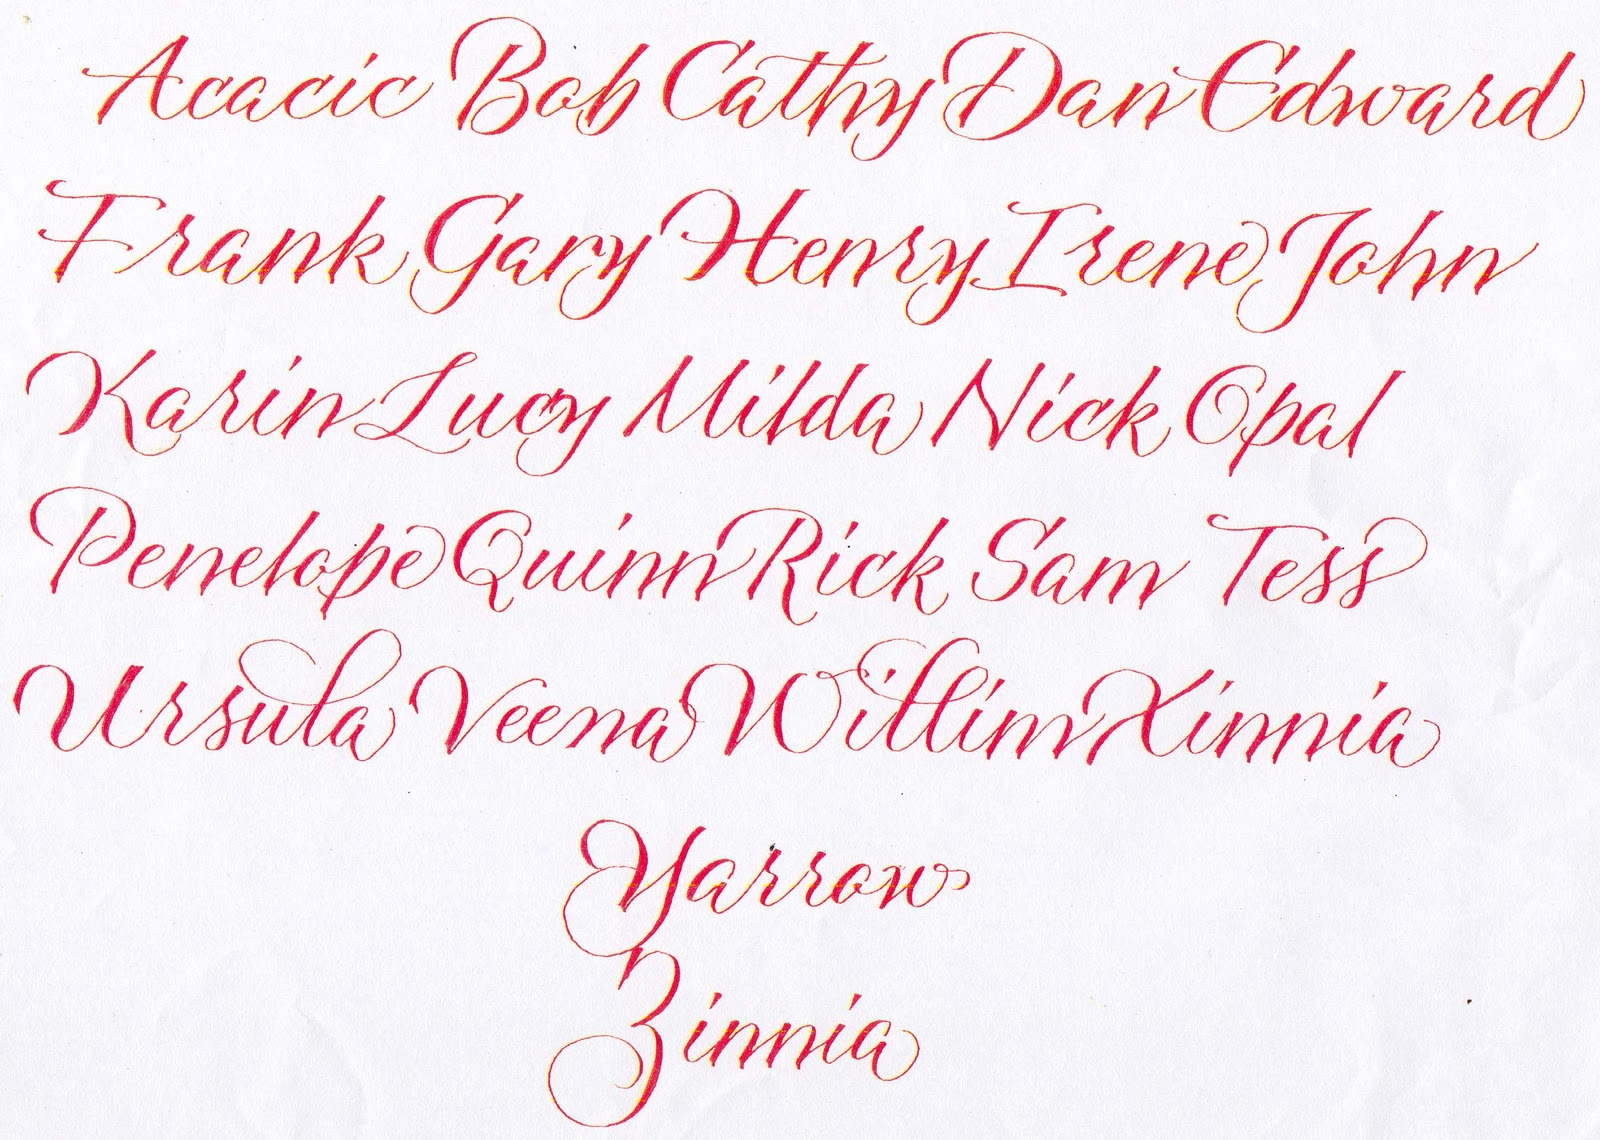 Acacic Bob Cathy Dan Edward
Frank Gary Henry Irene John
Karin Lucy Milda Nick Opal
Penelope Quinn Rick Sam Tess
Ursula Veena Willim Xinnia
Yarrow
Zinnia